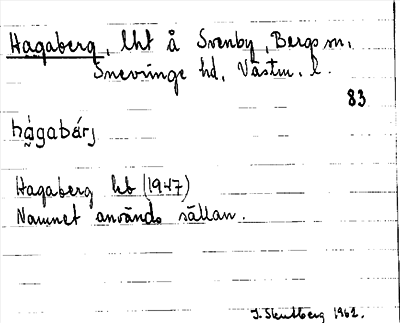 Hagaberg, lht å Svenby, Bergs sn,
Snevringe hd, Västm. l.
83
hágabárj
Hagaberg hb (1947)
Namnet används sällan.
1962.